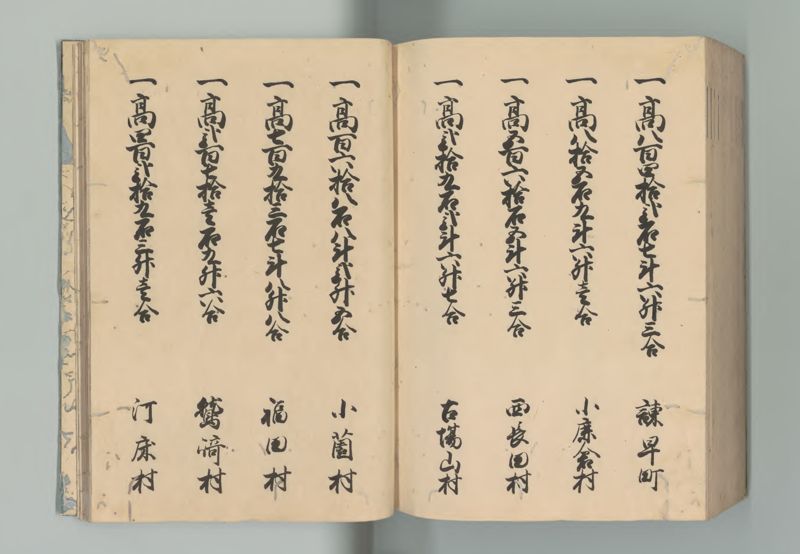 一高八百四拾弐石七斗六升三合 諫早町
一高八拾五石九斗六升壱合 小廉倉村
一高五百六拾石五斗六升三合 西長田村
一高弐拾九石弐斗六升七合 古場山村
一高百六拾八石八斗弐升五合 小薗村
一高七百九拾三石七斗八升八合 福田村
一高弐百七拾壱石九升六合 鷲﨑村
一高四百弐拾九石三升壱合 汀床村